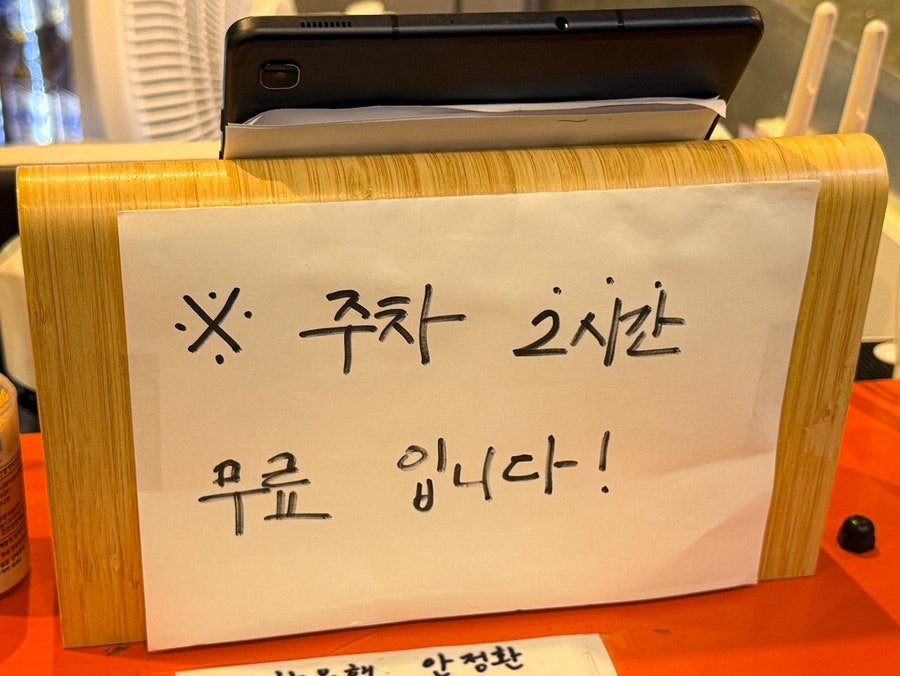 ※ 주차 2시간
무료 입니다!
안정환